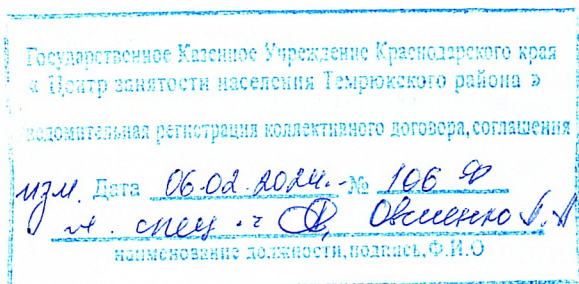 Государственное Казенное Учреждение Краснодарского края
« Центр занятости населения Темрюкского района »
ведомительная регистрация коллективного договора,соглашения
изм. Дата 06.02.2024.-№ 106 Ф
спец
наименование должности,подпись,Ф.И.О